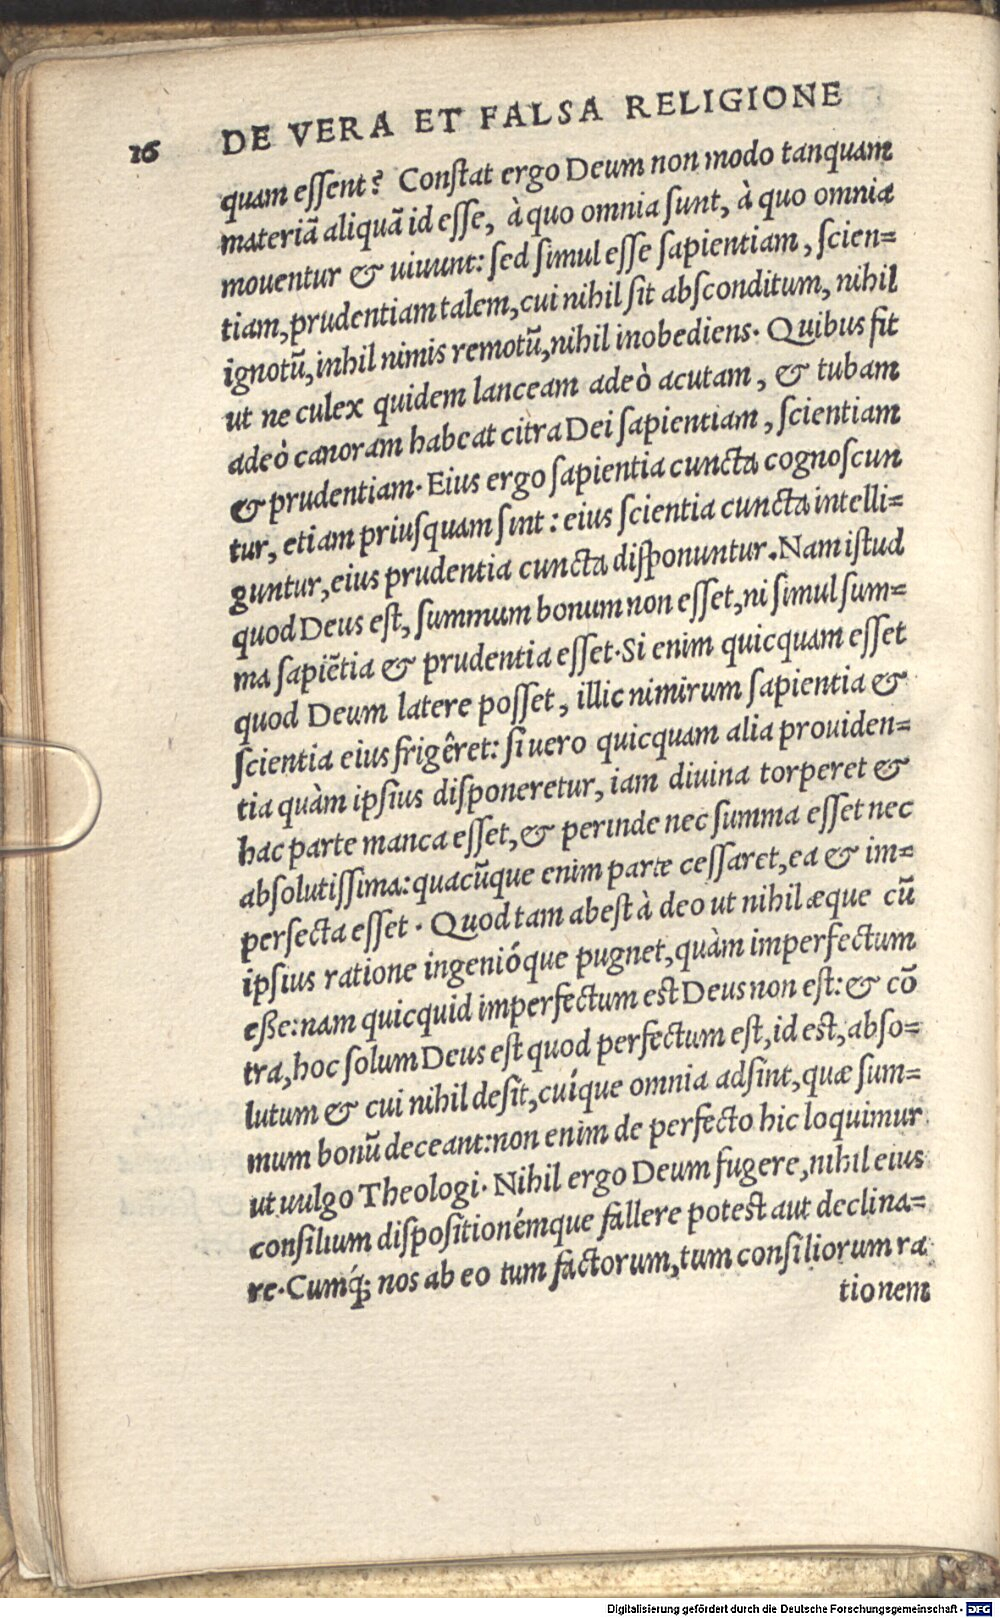 16 DE VERA ET FALSA RELIGIONE
quam eſſent? Conſtat ergo Deum non modo tanquam
materiā aliquā id eſſe, à quo omnia ſunt, à quo omnia
mouentur & uiuunt: ſed ſimul eſſe ſapientiam, ſcien=
tiam, prudentiam talem, cui nihil ſit abſconditum, nihil
ignotū, inhil nimis remotū, nihil inobediens. Quibus fit
ut ne culex quidem lanceam adeò acutam, & tubam
adeò canoram habeat citra Dei ſapientiam, ſcientiam
& prudentiam. Eius ergo ſapientia cuncta cognoſcun
tur, etiam priuſquam ſint: eius ſcientia cuncta intelli=
guntur, eius prudentia cuncta diſponuntur. Nam iſtud
quod Deus eſt, ſummum bonum non eſſet, ni ſimul ſum=
ma ſapiētia & prudentia eſſet. Si enim quicquam eſſet
quod Deum latere poſſet, illic nimirum ſapientia &
ſcientia eius frigêret: ſi uero quicquam alia prouiden=
tia quàm ipſius diſponeretur, iam diuina torperet &
hac parte manca eſſet, & perinde nec ſumma eſſet nec
abſolutiſſima: quacūque enim parte ceſſaret, ea & im=
perfecta eſſet. Quod tam abeſt à deo ut nihil æque cū
ipſius ratione ingenióque pugnet, quàm imperfectum
eße: nam quicquid imperfectum est Deus non eſt: & cō
tra, hoc ſolum Deus eſt quod perfectum eſt, id est, abſo=
lutum & cui nihil deſit, cuíque omnia adſint, quæ ſum=
mum bonū deceant: non enim de perfecto hic loquimur
ut uulgo Theologi. Nihil ergo Deum fugere, nihil eius
conſilium diſpoſitionémque fallere potest aut declina=
re. Cumq́; nos ab eo tum factorum, tum conſiliorum ra
tionem
Digitalisierung gefördert durch die Deutsche Forschungsgemeinschaft - DFG